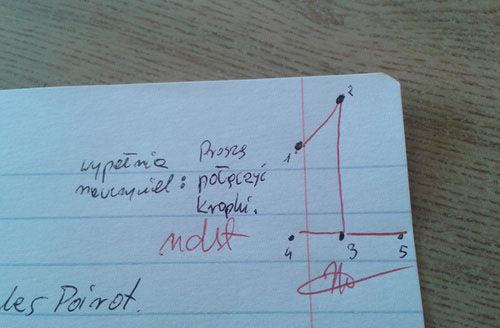 2
wypełnia Proszę
1
nauczyciel: połączyć
kropki.
ndst
4 3 5
les Poirot.